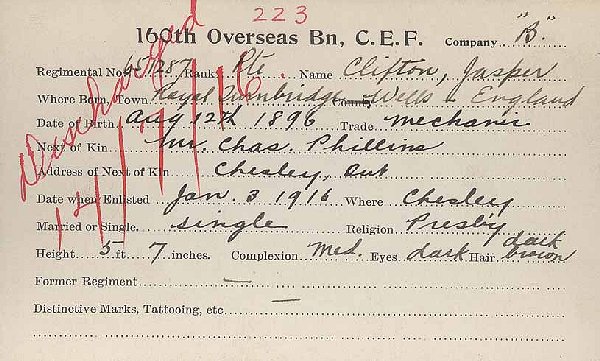 223
160th Overseas Bn, C.E.F. Company "B."
Regimental No. 651287 Rank Pte. Name Clifton, Jasper
Where Born, Town Royal Tunbridge County Wells England
Date of Birth Aug 12th 1896 Trade mechanic
Next of Kin Mr. Chas. Phillins
Address of Next of Kin Chesley, Ont
Date when Enlisted Jan. 3 1916 Where Chesley
Married or Single single Religion Presby
Height 5 ft 7 inches. Complexion Med. Eyes dark Hair dark brown
Former Regiment —
Distinctive Marks, Tattooing, etc —
Discharged